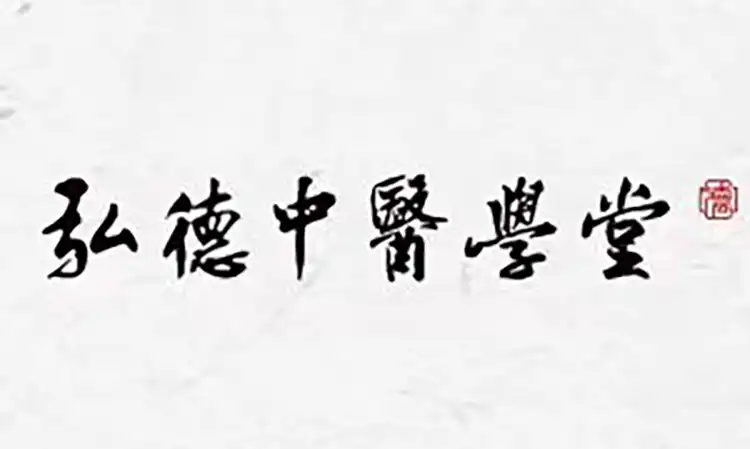 弘德中醫學堂